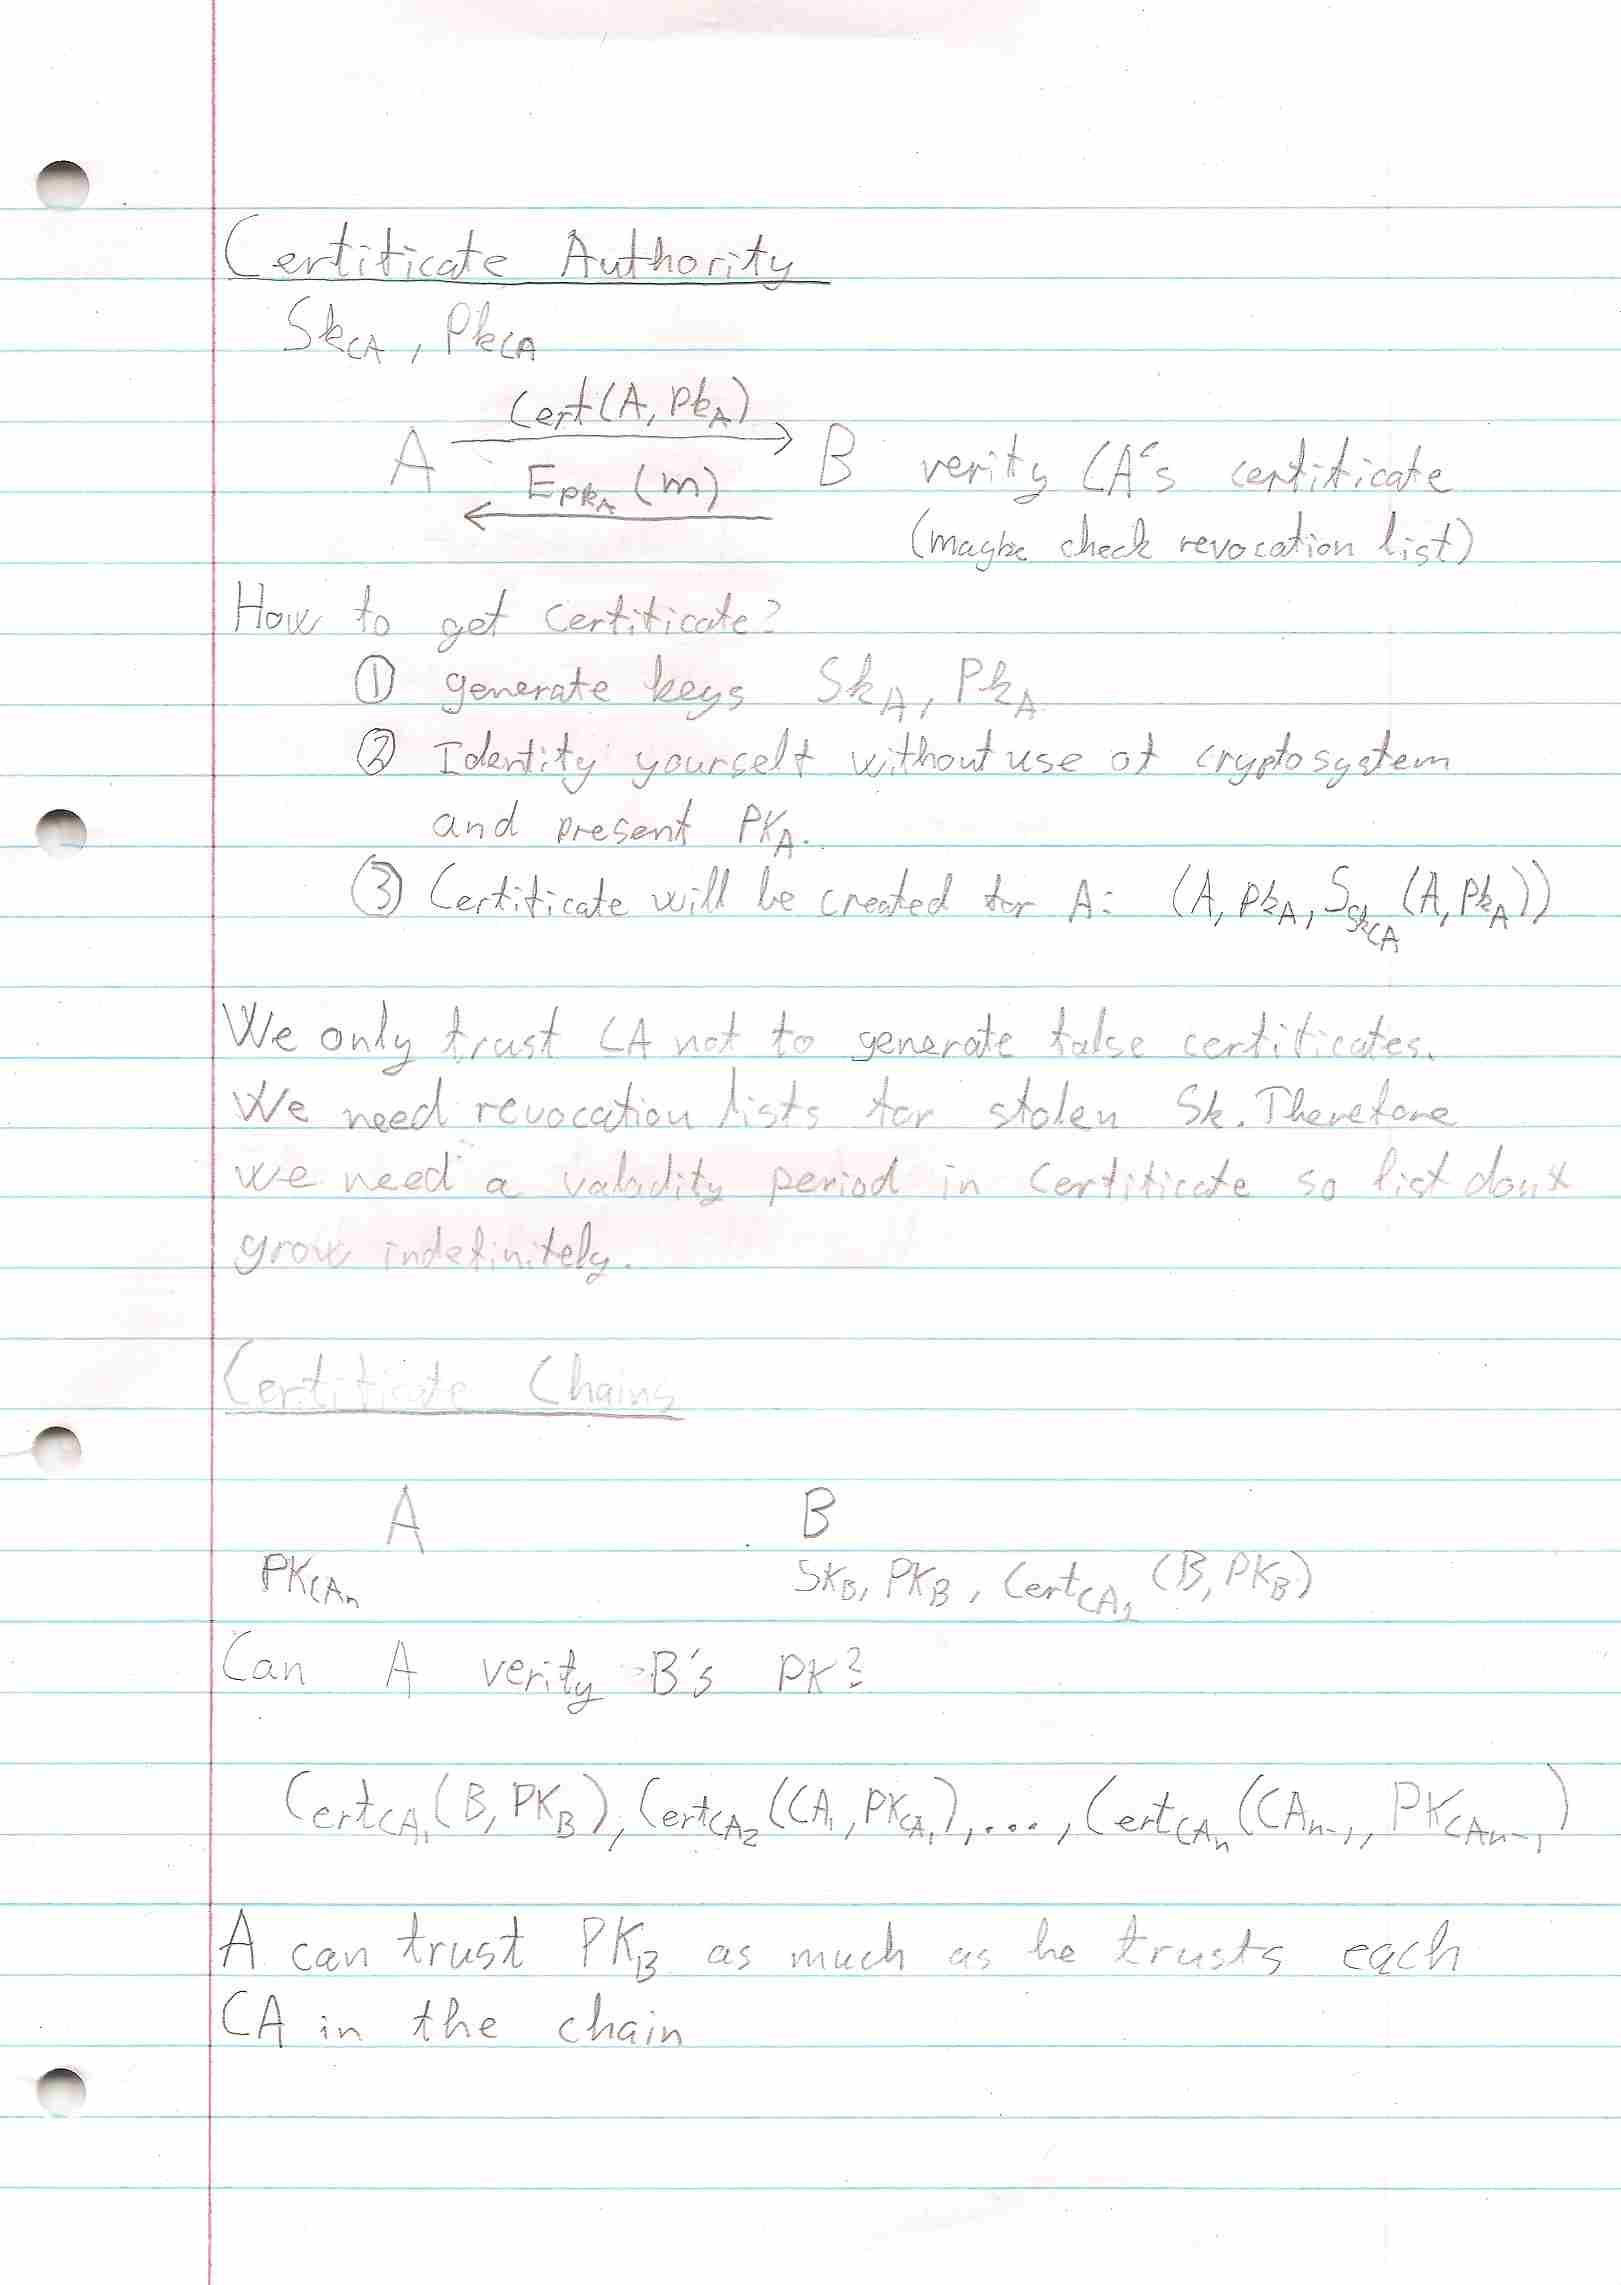 Certificate Authority
Sk_CA, Pk_CA
Cert(A, Pk_A)
A → B verify CA's certificate
E_Pk_A (m)
(maybe check revocation list)
How to get certificate?
① generate keys Sk_A, Pk_A
② Identify yourself without use of cryptosystem
and present PK_A.
③ Certificate will be created for A: (A, Pk_A, S_Sk_CA (A, Pk_A))
We only trust CA not to generate false certificates.
We need revocation lists for stolen Sk. Therefore
we need a valadity period in certificate so list don't
grow indefinitely.
Certificate Chains
A B
PK_CA_n SK_B, PK_B, Cert_CA_1 (B, PK_B)
Can A verify B's PK?
Cert_CA_1 (B, PK_B), Cert_CA_2 (CA_1, PK_CA_1), ..., Cert_CA_n (CA_n-1, PK_CA_n-1)
A can trust PK_B as much as he trusts each
CA in the chain